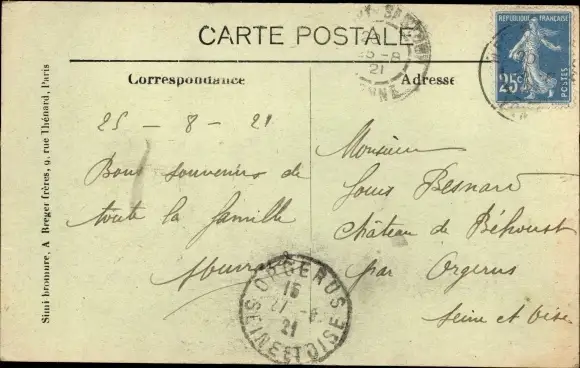 CARTE POSTALE
Correspondance
Adresse
25 - 8 - 21
Bons souvenirs de
toute la famille
Monsieur
Louis Besnard
Château de Béhoust
par Orgerus
Seine et Oise
Simi-bromure. A Breger frères, 9, rue Thénard, Paris
REPUBLIQUE FRANÇAISE
25c
POSTES
25-8
21
ORGERUS
15
27 -8
21
SEINE ET OISE